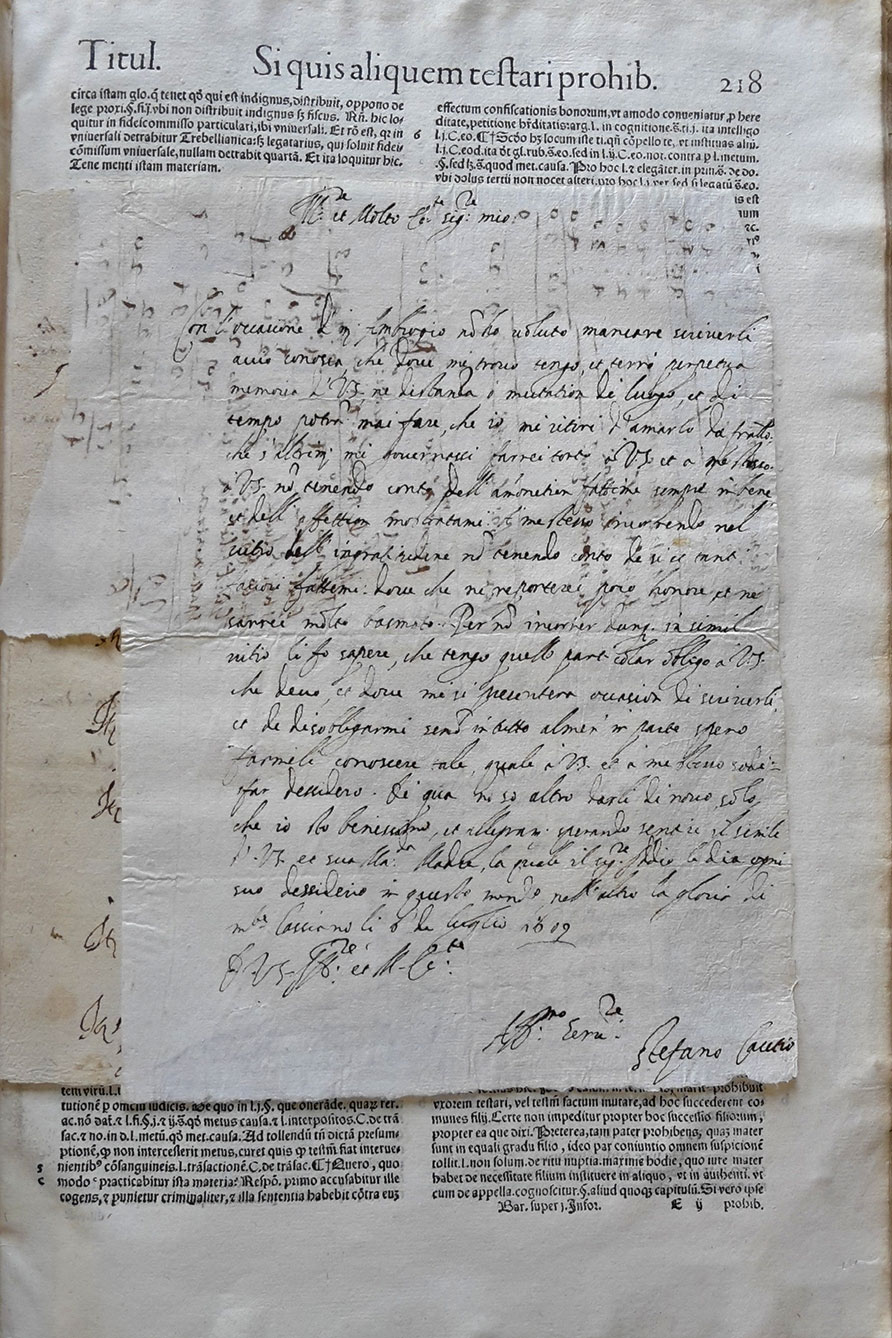 Titul. Si quis aliquem testari prohib. 218
circa istam glo. q̃ tenet qð qui est indignus, distribuit, oppono de
lege proxi. §. fi. j. vbi non distribuit indignus sʒ fiscus. Rñ. hic lo-
quitur in fideicommisso particulari, ibi vniuersali. Et rõ est, qꝛ in
vniuersali detrahitur Trebellianica: sʒ legatarius, qui soluit fidei-
cõmissum vniuersale, nullam detrahit quartã. Et ita loquitur hic.
Tene menti istam materiam.
effectum confiscationis bonorum, vt amodo conueniatur, ꝑ here
ditate, petitione hr̃ditatis: arg. l. in cognitione. s̃. ti. j. ita intelligo
6
l. j. C. eo. ¶ Scðo hʒ locum iste ti. qñ cõpello te, vt instituas aliũ.
l. j. C. eod. ita ðt gl. rub. s̃. eo. sed in l. ij. C. eo. not. contra p l. metum.
§. sed lʒ. s̃. quod met. causa. Pro hoc l. & elegãter. in prin. s̃. de do.
vbi dolus tertij non nocet alteri. pro hoc l. j. ver. sed si legatũ s̃. eo.
is est
num
Ill.re et Molto Ec.te sig.re mio.
Con l'occasione d' m. Ambrogio nõ ho uoluto mancare scriuerli
acciò conosca, che doue mi trouo tengo, et terrò perpetua
memoria d' VS, ne distanza o mutation di luogo, et di
tempo potrà mai fare, che io mi ritiri d'amarlo da fratello.
che s'altrim. mi gouernassi farrei torto à VS. et a me stesso.
à VS. nõ tenendo conto dell' amonetion fattime sempre in bene
et dell' affettion mostratami. A me stesso incorrendo nel
uitio dell' ingratitudine nõ tenendo conto de si et tanti
fauori fattimi: doue che ne reporterei poco honore et ne
sarrei mõlto biasmato. Per nõ incorrer dunq. in simil
uitio li fo sapere, che tengo quello particolar obligo à VS.
che deuo, et doue mi si presenterà occasion di scriuerli,
et de disobligarmi senõ in tutto almen' in parte spero
farmeli conoscere tale, quale à VS. et à me stesso sodis-
far dessidero. Di qua nõ so altro darli di nouo, sõlo
che io sto benissimo, et allegram. sperando sentir il simile
d' VS. et sua Ma.ca Madre, la quale il sig.re Iddio li dia ogni
suo dessiderio in questo mondo nell'altro la gloria di
Cassiano li 6 de luglio 1609
D VS. Ill.re et M. Ec.te
Aff.mo Seru.re
Stefano
tem virũ. l. i
tutionẽ ꝑ omciũ iudicis. De quo in l. j. §. que onerãde. quarʒ rer.
ac. nõ dat̃. & l. fi. §. j. & ij. s̃. qð metus causa. & l. interpositos. C. de trã
sac. & no. in d. l. metũ. qð met. causa. Ad tollendũ tñ dictã presum-
ptionẽ, ꝙ non intercesserit metus, curet quis ꝙ testm̃ fiat interue-
s
nientibꝰ cõsanguineis. l. trãsactionẽ. C. de trãsac. ¶ Quero, quo
c
modo practicabitur ista materia? Respõ. primo accusabitur ille
cogens, & punietur criminaliter, & illa sententia habebit cõtra eus
vxorem testari, vel testm̃ factum mutare, ad hoc succederent co-
munes filij. Certe non impeditur propter hoc successio filiorum,
propter ea que dixi. Preterea, tam pater prohibens, quaʒ mater
sunt in equali gradu filio, ideo par coniuntio omnem suspicionẽ
tollit. l. non solum. de ritu nuptia. maxime hodie, quo iure mater
habet de necessitate filium instituere in aliquo, vt in authenti. vt
cum de appella. cognoscitur. §. aliud quoqʒ capitulũ. Si vero ipse
Bar. super j. Infor. E ij prohib.